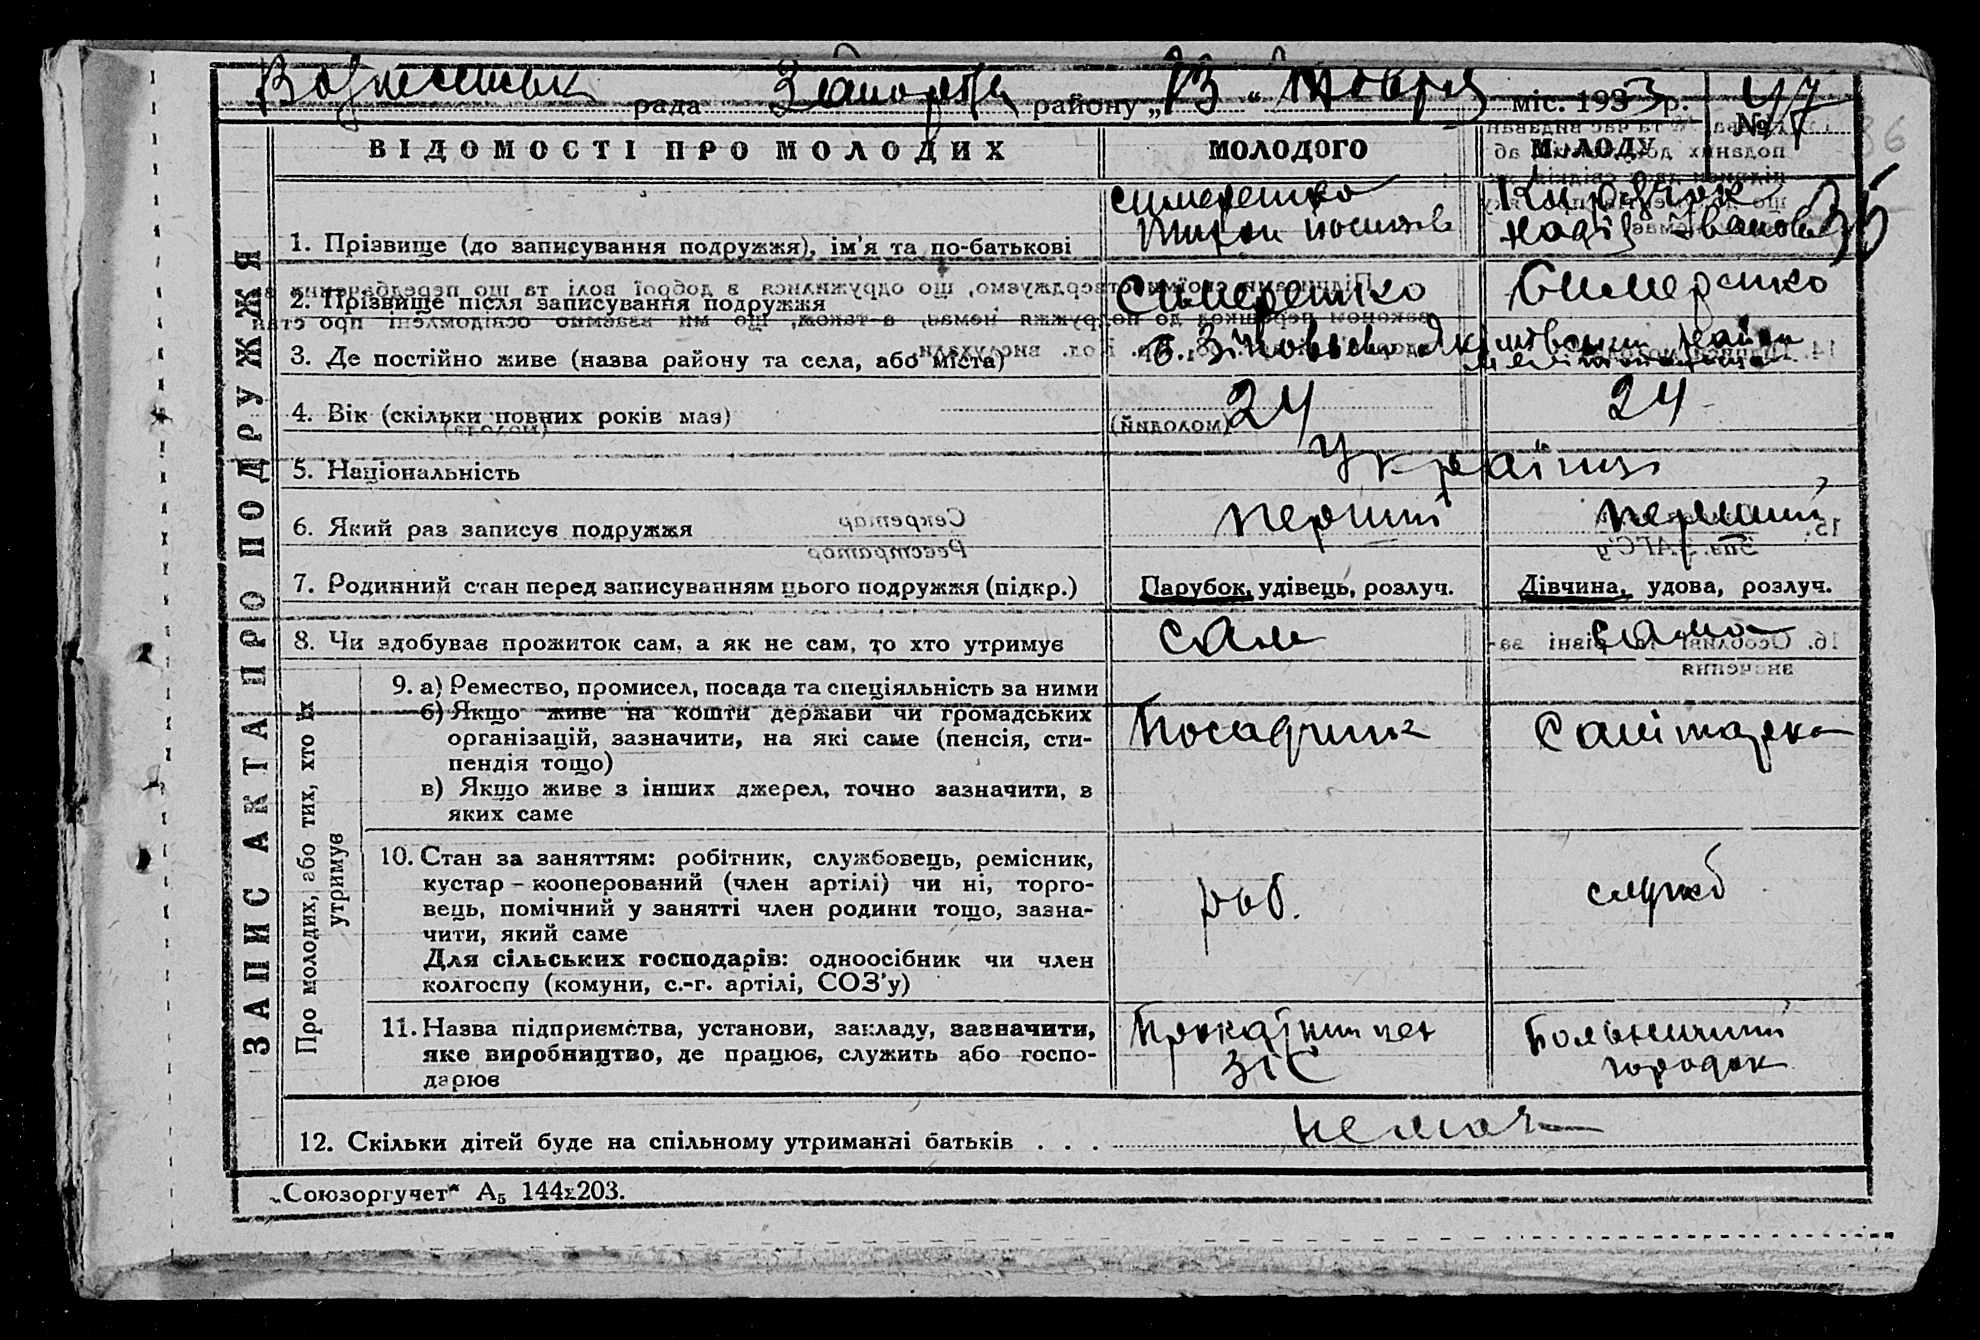 Вознесенськ рада районну „13“ Жовтня міс. 1933 р. № 47
ВІДОМОСТІ ПРО МОЛОДИХ МОЛОДОГО МОЛОДУ
36
ЗАПИС АКТА ПРО ПОДРУЖЖЯ
1. Прізвище (до записування подружжя), ім’я та по-батькові
Надія Іванов
2. Прізвище після записування подружжя
3. Де постійно живе (назва району та села, або міста)
4. Вік (скільки повних років має) 24 24
5. Національність Українці
6. Який раз записує подружжя перший перший
7. Родинний стан перед записуванням цього подружжя (підкр.) Парубок, удівець, розлуч. Дівчина, удова, розлуч.
8. Чи здобував прожиток сам, а як не сам, то хто утримує сам сама
Про молодих, або тих, хто їх утримує
9. а) Ремество, промисел, посада та спеціяльність за ними
б) Якщо живе на кошти держави чи громадських
організацій, зазначити, на які саме (пенсія, сти-
пендія тощо)
в) Якщо живе з інших джерел, точно зазначити, з
яких саме
Посадчик Санітарка
10. Стан за заняттям: робітник, службовець, ремісник,
кустар – кооперований (член артілі) чи ні, торго-
вець, помічний у занятті член родини тощо, зазна-
чити, який саме
Для сільських господарів: одноосібник чи член
колгоспу (комуни, с.-г. артілі, СОЗ’у)
роб. служб
11. Назва підприємства, установи, закладу, зазначити,
яке виробництво, де працює, служить або госпо-
дарює
Больничний
городок
12. Скільки дітей буде на спільному утриманні батьків . . . немає
„Союзоргучет“ А5 144х203.